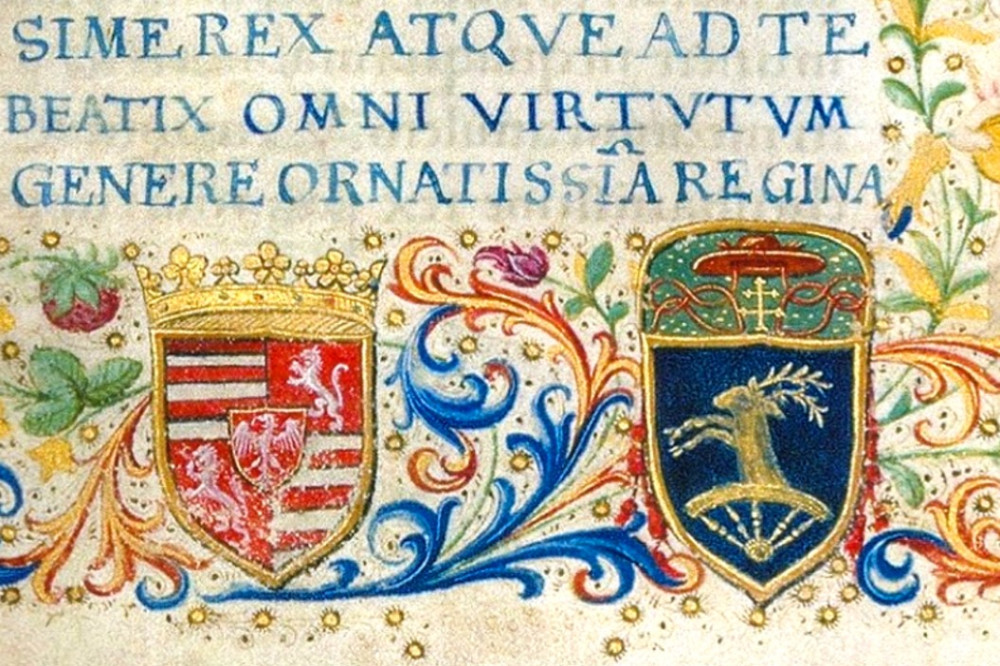 SIME REX ATQVE AD TE
BEATIX OMNI VIRTVTVM
GENERE ORNATISSĪA REGINA